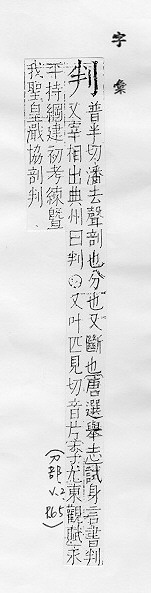 字彙
判 普半切潘去聲剖也分也又斷也(唐選舉志)試身言書判
又宰相出典州曰判○又叶匹見切音片李尤東觀賦永
平持綱建初考練暨
我聖皇濈協剖判
(刀部, V.2, P.65)